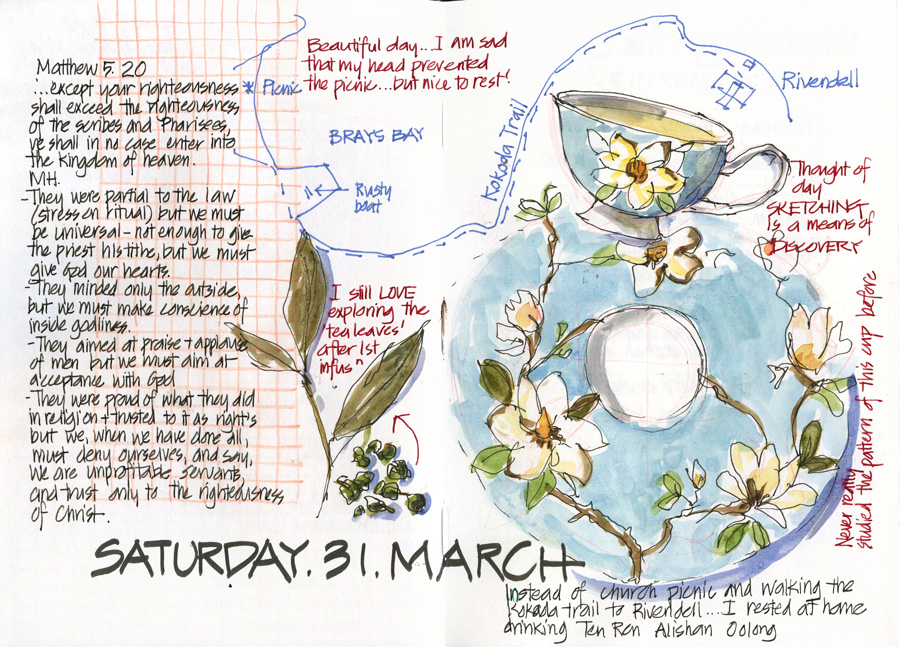 Matthew 5. 20
...except your righteousness
shall exceed the righteousness
of the scribes and Pharisees,
ye shall in no case enter into
the kingdom of heaven.
MH.
-They were partial to the law
(stress on ritual) but we must
be universal - not enough to give
the priest his tithe, but we must
give God our hearts.
-They minded only the outside,
but we must make conscience of
inside godlines.
-They aimed at praise + applause
of men but we must aim at
acceptance with God
-They were proud of what they did
in religion + trusted to it as right's
but we, when we have done all,
must deny ourselves, and say,
we are unprofitable servants
and trust only to the righteousness
of Christ.
* Picnic
Beautiful day...I am sad
that my head prevented
the picnic...but nice to rest!
BRAYS BAY
Rusty
boat
Kokoda Trail
Rivendell
I still LOVE
exploring the
tea leaves!
after 1st
infusn
Thought of
day
SKETCHING
is a means of
DISCOVERY
Never really
studied the pattern of this cup before
SATURDAY. 31. MARCH
Instead of church picnic and walking the
Kokoda trail to Rivendell...I rested at home
drinking Ten Ren Alishan Oolong